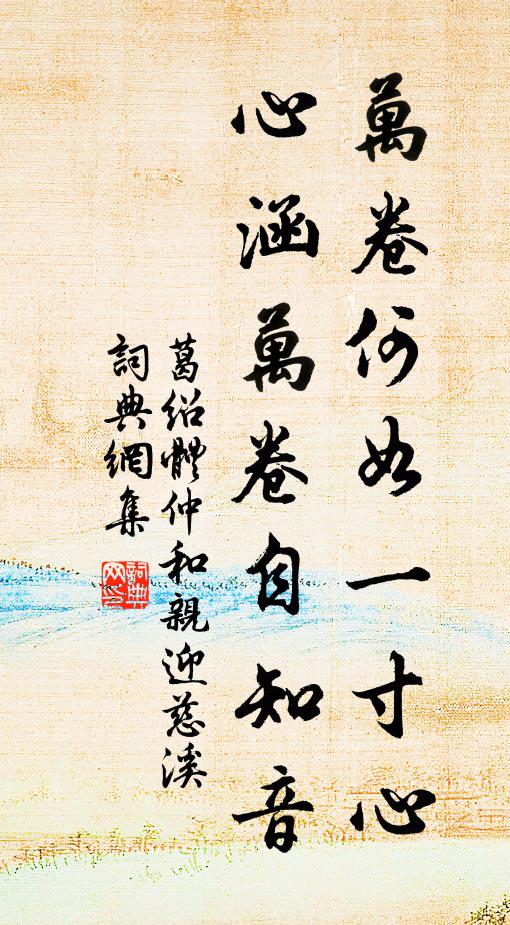 萬卷何如一寸心
心涵萬卷自知音
葛紹體仲和親迎慈溪
詞典網集
詞典网印